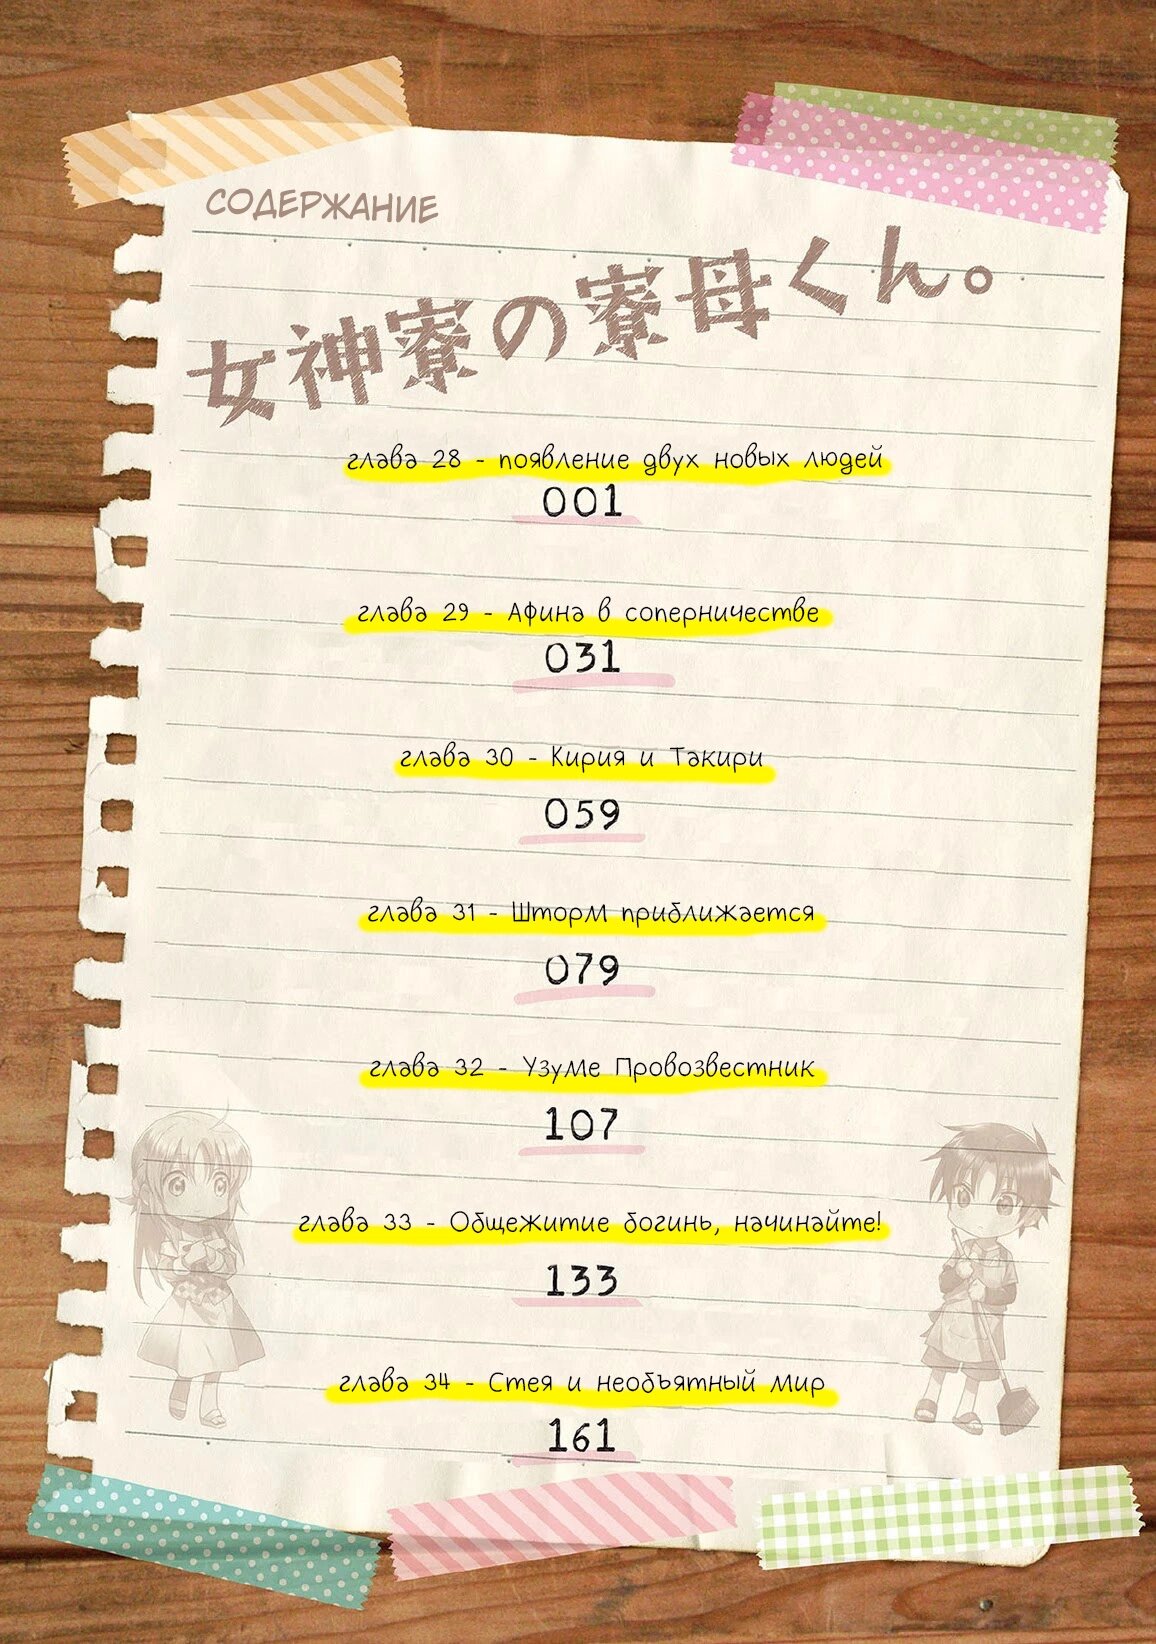 СОДЕРЖАНИЕ
女神寮の寮母くん。
глава 28 - появление двух новых людей
001
глава 29 - Афина в соперничестве
031
глава 30 - Кирия и Такири
059
глава 31 - Шторм приближается
079
глава 32 - Узуме Провозвестник
107
глава 33 - Общежитие богинь, начинайте!
133
глава 34 - Стея и необъятный мир
161